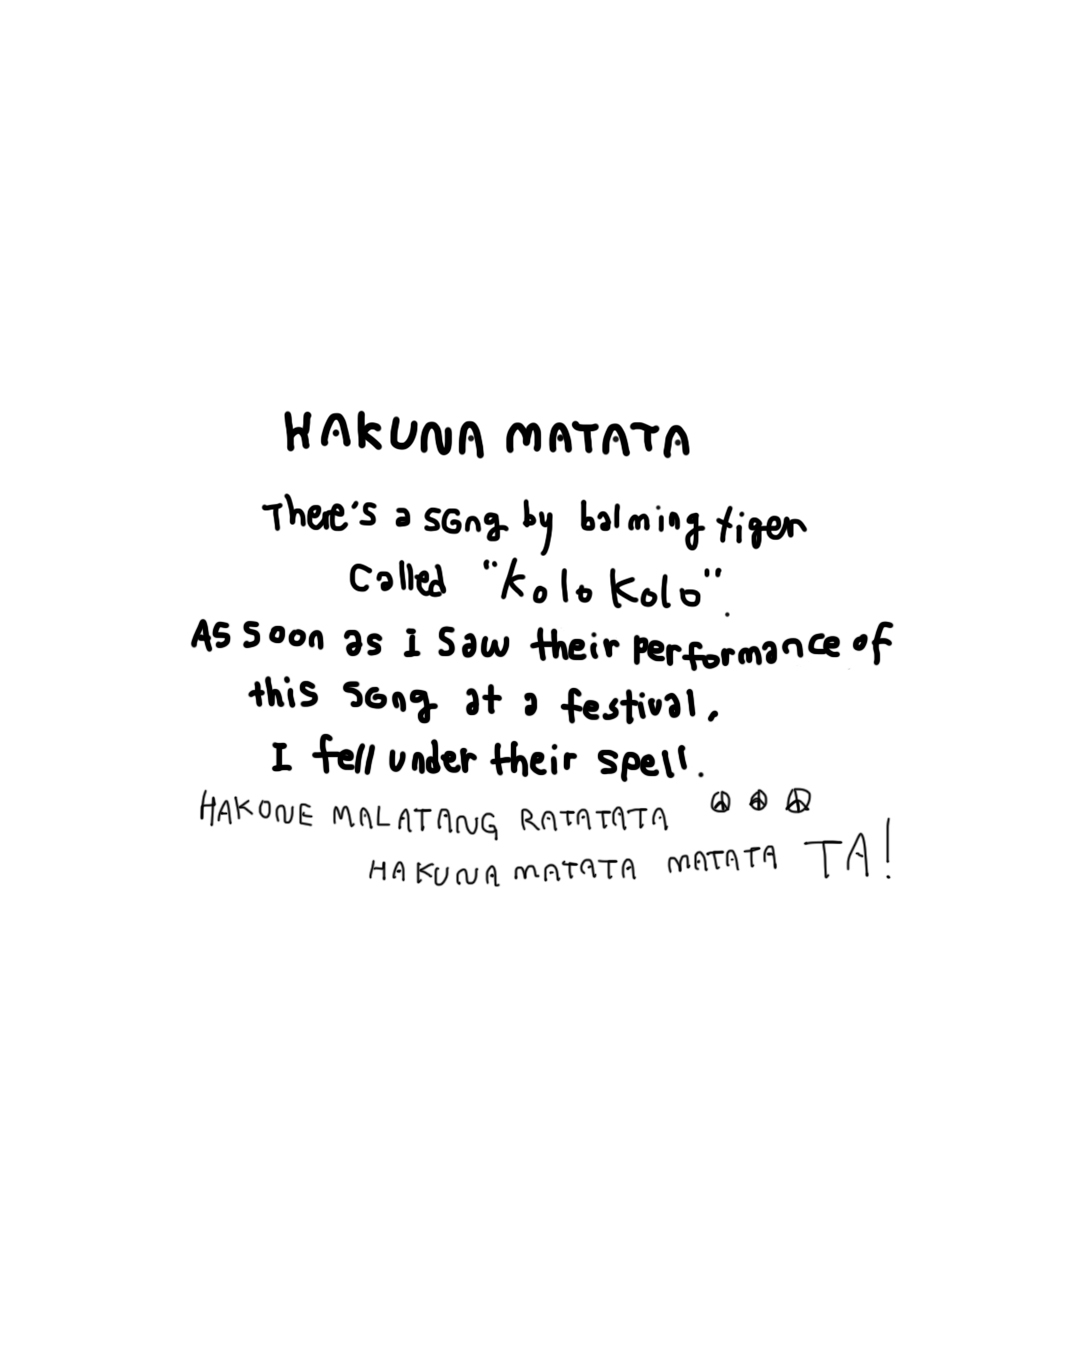 HAKUNA MATATA
There's a song by balming tiger
called "Kolo Kolo".
As soon as I saw their performance of
this song at a festival,
I fell under their spell.
HAKONE MALATANG RATATATA ☮ ☮ ☮
HAKUNA MATATA MATATA TA!